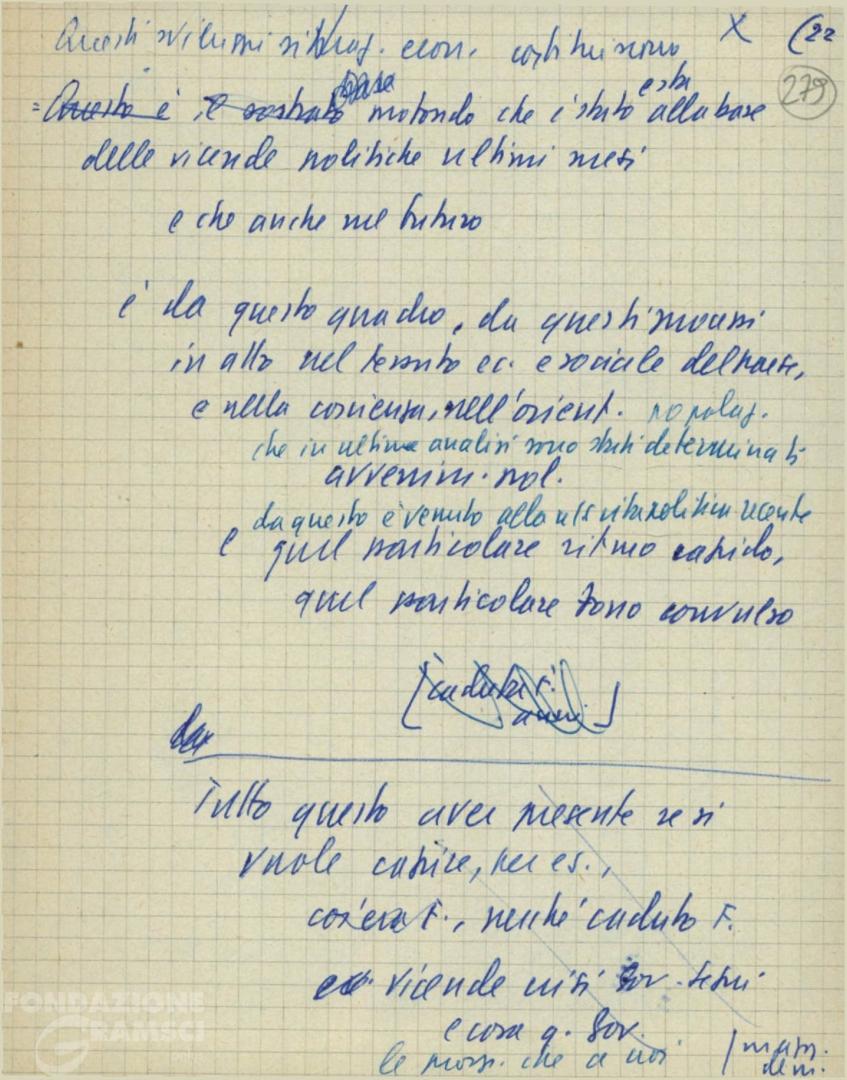 Questi sviluppi situaz. econ. costituiscono X (22
279
base
e sta
= Questo è il sostrato profondo che è stato alla base
delle vicende politiche ultimi mesi
e che anche nel futuro
è da questo quadro, da questi processi
in atto nel tessuto ec. e sociale del paese,
e nella coscienza, nell'orient. popolaz.
che in ultima analisi sono stati determinati
avvenim. pol.
da questo è venuto alla ns vita politica recente
e quel particolare ritmo rapido,
quel particolare tono convulso
[caduta F.
]
da
Tutto questo aver presente se si
vuole capire, per es.,
cos'era F., perché caduto F.
vicende crisi gov. Segni
e cosa q. Gov.
le poss. che a noi
FONDAZIONE
GRAMSCI